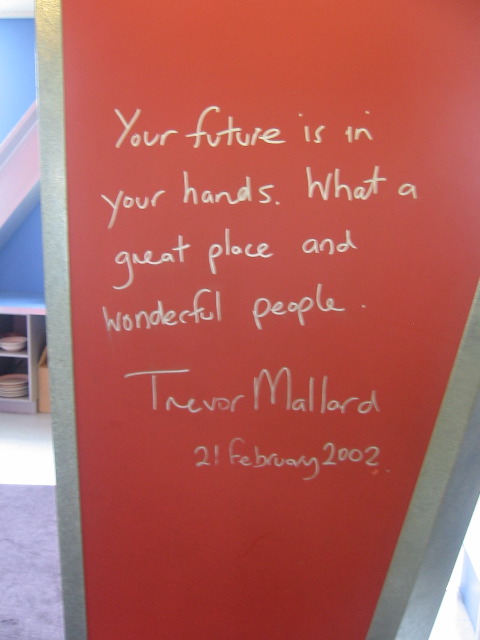 Your future is in
your hands. What a
great place and
wonderful people.
Trevor Mallard
21 February 2002.